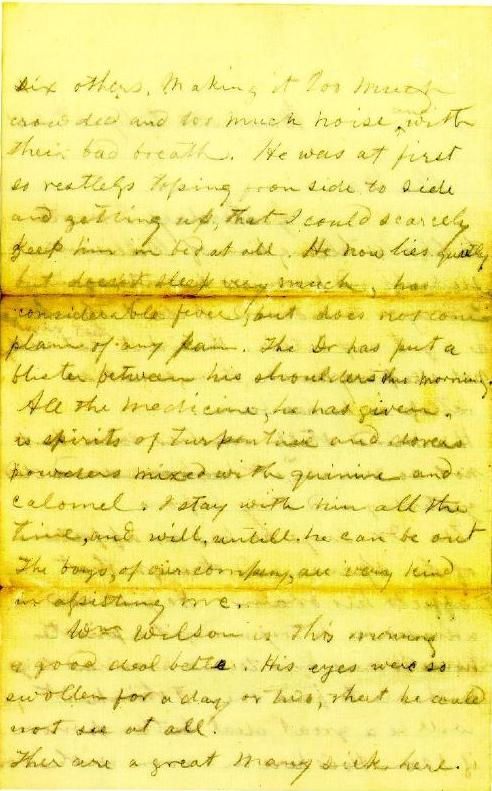 six others, Making it too much
crowded and too much noise, and with
their bad breath. He was at first
so restless tossing from side to side
and getting up, that I could scarcely
keep him in bed at all. He now lies quietly
but doesnt sleep very much, has
considerable fever but does not com
plane of any pain. The Dr has put a
blister between his shoulders this morning.
All the medicine, he has given,
is spirits of turpentine and dovers
powders mixed with quinine and
calomel. I stay with him all the
time, and will, untill he can be out
The boys, of our company, are very kind
in assisting me.
Wm Wilson is this morning
a good deal better. His eyes were so
swollen for a day or two, that he could
not see at all.
Ther are a great many sick here.